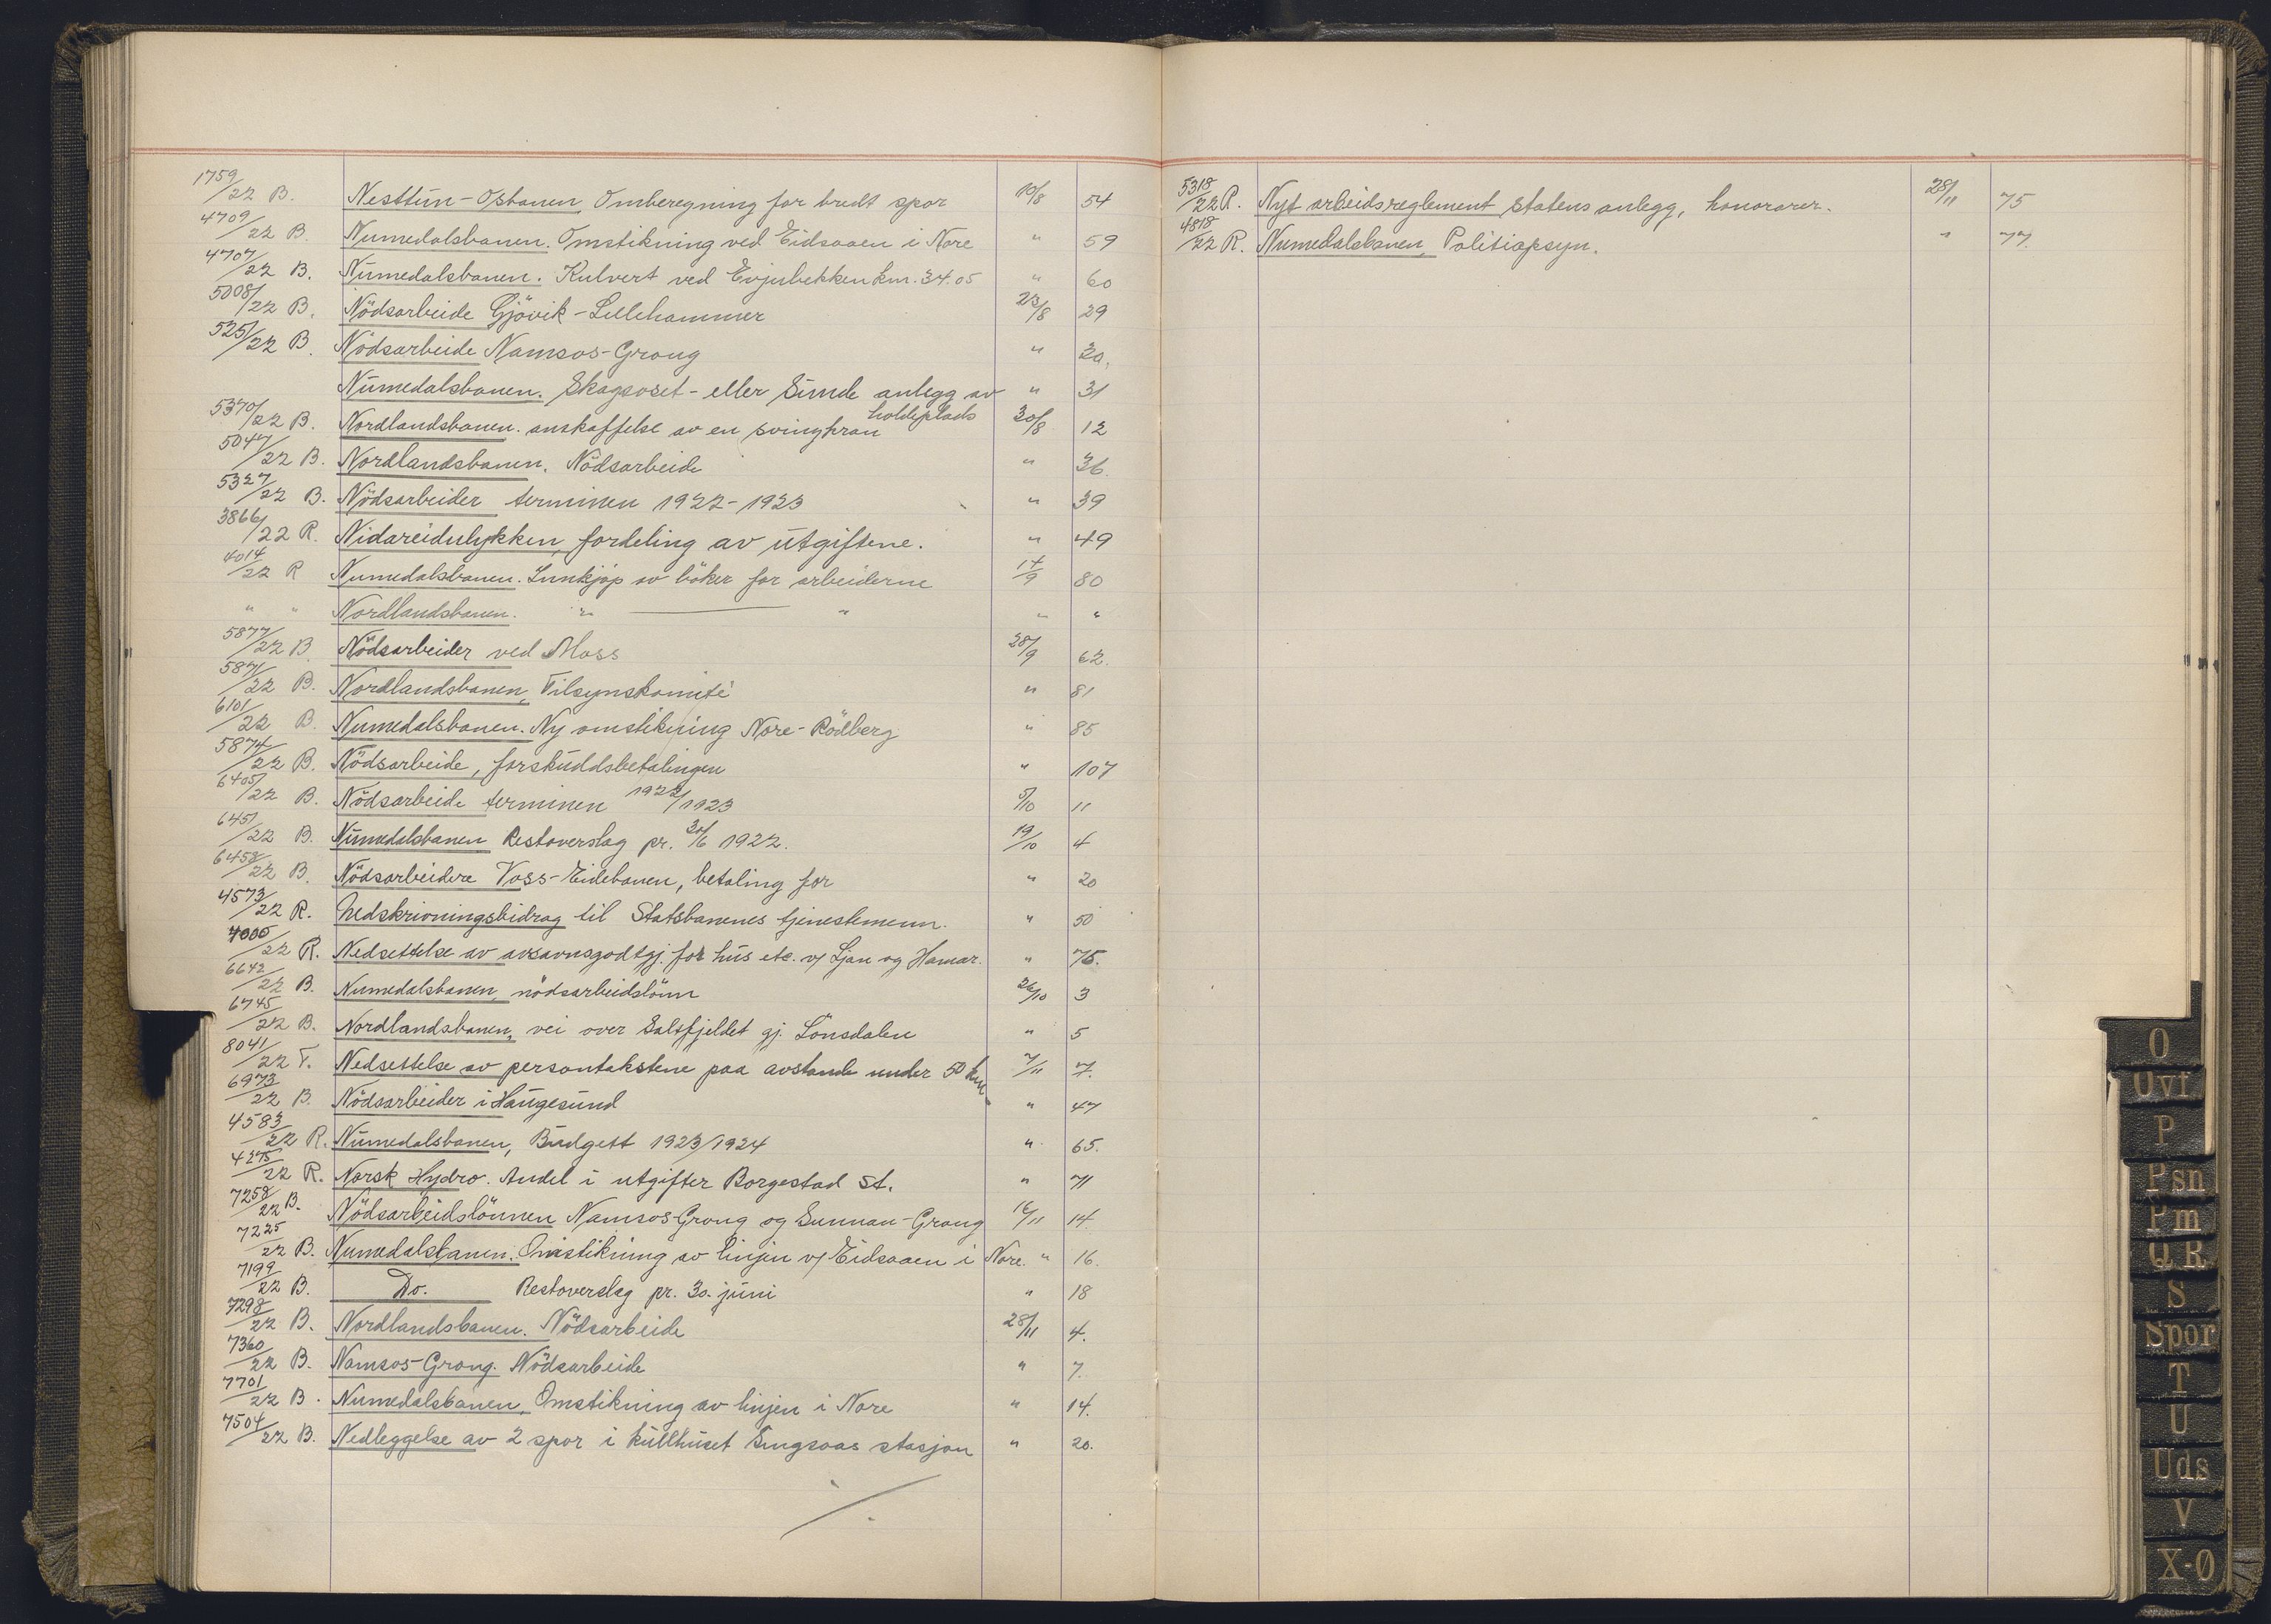 1759/22 B. Nesttun-Osbanen Omberegning for bredt spor 10/8 54
4709/22 B. Numedalsbanen. Omstikning ved Eidsaaen i Nore " 59
4707/22 B. Numedalsbanen. Kulvert ved Evjubekken km. 34.05 " 60
5008/22 B. Nödsarbeide Gjövik-Lillehammer 23/8 29
5251/22 B. Nödsarbeide Namsos-Grong " 30.
Numedalsbanen. Skagsoset- eller Sunde anlegg av holdeplads " 31
5370/22 B. Nordlandsbanen. anskaffelse av en svingkran 30/8 12
5047/22 B. Nordlandsbanen. Nödsarbeide " 36.
5327/22 B. Nödsarbeider terminen 1922-1923 " 39
3866/22 R. Nidareidulykken, fordeling av utgiftene. " 49
4014/22 R Numedalsbanen. Innkjöp av böker for arbeiderne 14/9 80
" " Nordlandsbanen. " " " "
5877/22 B Nödsarbeider ved Moss 28/9 62.
5871/22 B. Nordlandsbanen, Tilsynskomité " 81
6101/22 B. Numedalsbanen. Ny omstikning Nore-Rödberg " 85
5874/22 B. Nödsarbeide, forskuddsbetalingen " 107
6405/22 B. Nödsarbeide terminen 1922/1923 5/10 11
6451/22 B. Numedalsbanen Restoverslag pr. 30/6 1922. 19/10 4
6458/22 B. Nödsarbeidere Voss-Eidebanen, betaling for " 20
4573/22 R. Nedskrivningsbidrag til Statsbanenes tjenestemenn. " 50
4000/22 R. Nedsettelse av avsavnsgodtgj. for hus etc. v/ Ljan og Hamar. " 75.
6642/22 B. Numedalsbanen, nödsarbeidslönn 26/10 3
6745/22 B. Nordlandsbanen, vei over Saltfjeldet gj. Lönsdalen " 5
8041/22 T. Nedsettelse av persontakstene paa avstande under 50 km. 7/11 7.
6973/22 B. Nödsarbeider i Haugesund " 47
4583/22 R. Numedalsbanen, Budgett 1923/1924 " 65.
4275/22 R. Norsk Hydro. Andel i utgifter Borgestad St. " 71
7258/22 B. Nödsarbeidslönnen Namsos-Grong og Sunnan-Grong 16/11 14.
7225/22 B. Numedalsbanen. Omstikning av linjen v/ Eidsaaen i Nore. " 16.
7199/22 B. Do. Restoverslag pr. 30. juni " 18
7298/22 B. Nordlandsbanen. Nödsarbeide 28/11 4.
7360/22 B. Namsos-Grong. Nödsarbeide " 7.
7701/22 B. Numedalsbanen, Omstikning av linjen i Nore " 14.
7504/22 B. Nedleggelse av 2 spor i kullhuset Singsaas stasjon " 20.
5318/22 R. Nyt arbeidsreglement statens anlegg, honorarer. 28/11 75
4818/22 R. Numedalsbanen, Politiopsyn. " 77.
O
Ovf
P
Psn
Pm
Q R
S
Spor
T
U
Uds
V
X-Ø